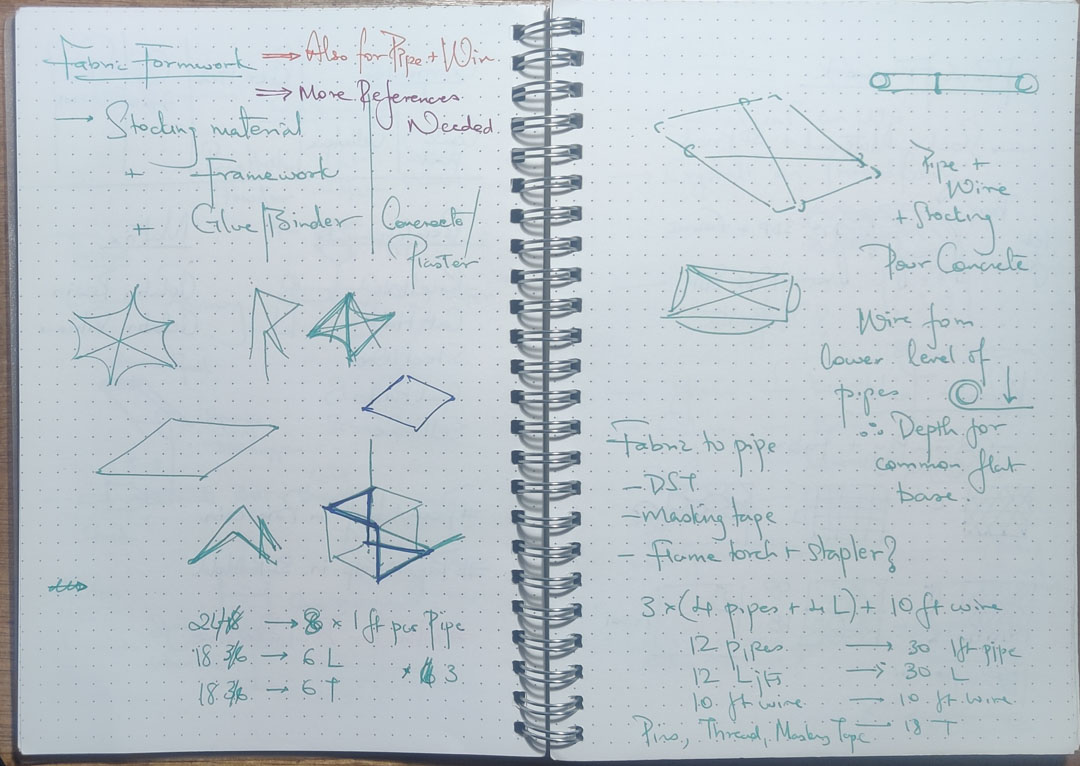 Fabric Formwork ⇒ Also for Pipe + Wire
⇒ More References
Needed.
→ Stocking material
+ Framework
+ Glue/Binder
Concrete/
Plaster
→ 8 × 1 ft per Pipe
18 → 6 L
× 3
18 → 6 T
Pipe +
Wire
+ Stocking
Pour Concrete
Wire from
lower level of
pipes
∴ Depth for
common flat
base.
Fabric to pipe
- DST
- Masking tape
- flame torch + stapler?
3 × (4 pipes + 4 L) + 10 ft wire
12 pipes → 30 1ft pipe
12 L jts → 30 L
10 ft wire → 10 ft wire
Pins, Thread, Masking Tape → 18 T